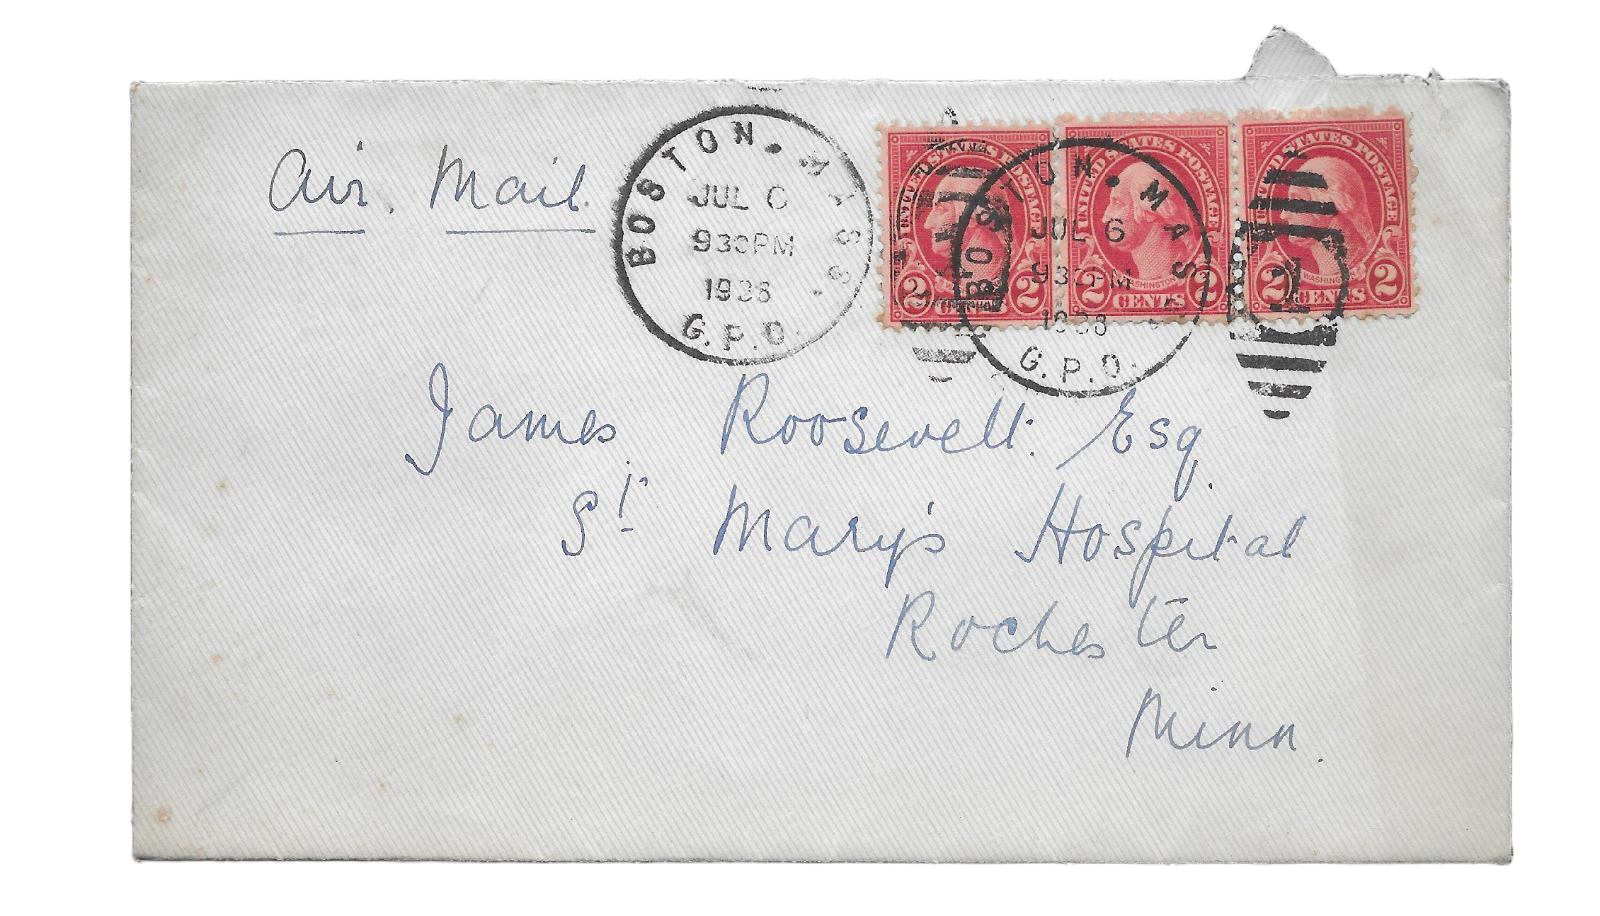 Air. Mail.
BOSTON. MASS.
JUL 6
930PM
1938
G.P.O.
UNITED STATES POSTAGE
2 CENTS 2
BOSTON. MASS.
JUL 6
930PM
1938
G.P.O.
UNITED STATES POSTAGE
WASHINGTON
2 CENTS 2
UNITED STATES POSTAGE
WASHINGTON
2 CENTS 2
James Roosevelt. Esq
St Mary's Hospital
Rochester
Minn.